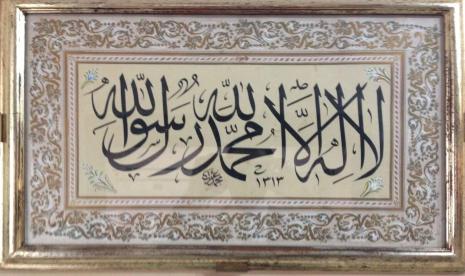 لا إله إلا الله محمد رسول الله
١٣١٣